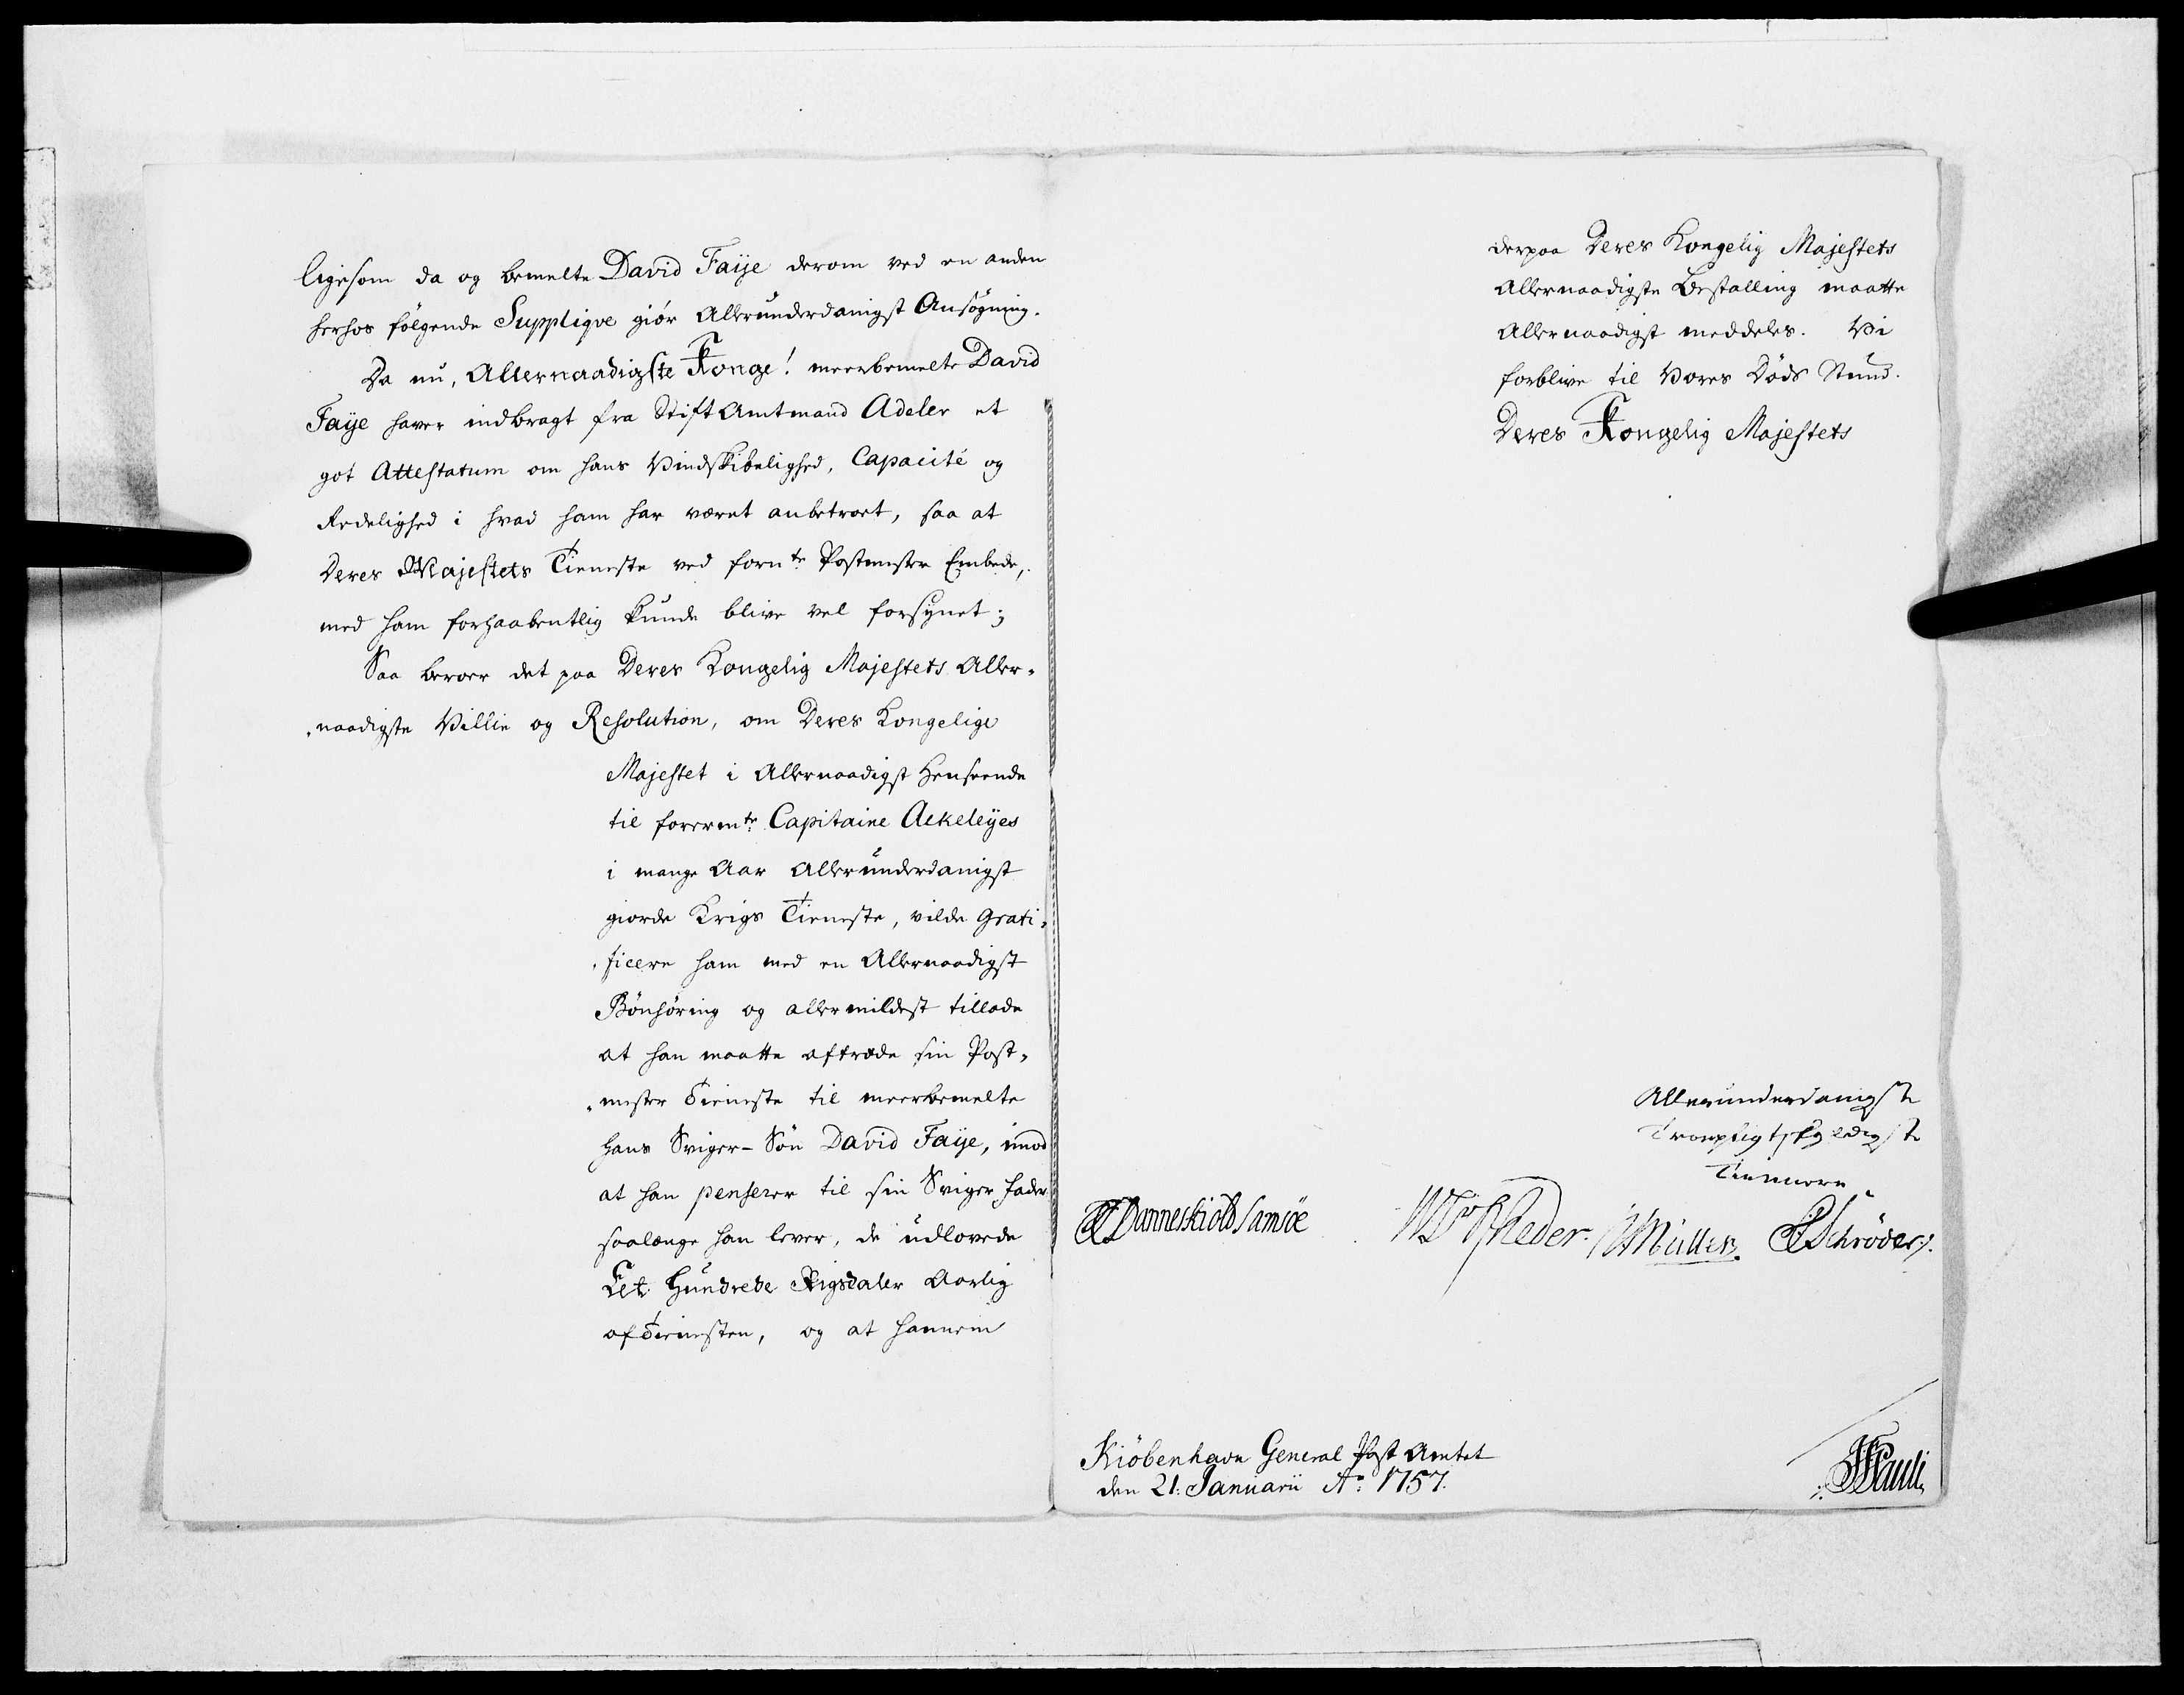 ligesom da og bemelte David Faije derom ved en anden
herhos følgende Suppliqve giör Allerunderdanigst Ansøgning.
Da nu, Allernaadigste Konge! meerbemelte David
Faije haver indbragt fra Stift Amtmand Adeler et
got Attestatum om hans Vindskibelighed, Capacité og
Redelighed i hvad ham har været anbetroet, saa at
Deres Majestets Tieneste ved fornte Postmester Embede,
med ham forhaabentlig kunde blive vel forsynet;
Saa beroer det paa Deres Kongelig Majestets Aller-
naadigste Villie og Resolution, om Deres Kongelige
Majestet i Allernaadigst Henseende
til forermte Capitaine Ackeleÿes
i mange Aar Allerunderdanigst
giorde Krigs Tieneste, vilde Grati-
ficere ham med en Allernaadigst
Bönhöring og allermildest tillade
at han maatte aftræde sin Post-
mester Tieneste til meerbemelte
hans Sviger-Sön David Faije, imod
at han penserer til sin Sviger Fader
saalænge han lever, de udlovede
Eet Hundrede Rigsdaler Aarlig
af Tienesten, og at hannem
derpaa Deres Kongelig Majestets
Allernaadigste Bestalling maatte
Allernaadigst meddeles. Vi
forblive til Vores Döds Stund.
Deres Kongelig Majestets
Allerunderdanigste
Troepligtskyldigste
Tiennere
Danneskiold Samsöe Rheder. Müller. Schröder.
Kiöbenhavn General Post Amtet
den 21. Januarii Ao. 1757.
Pauli